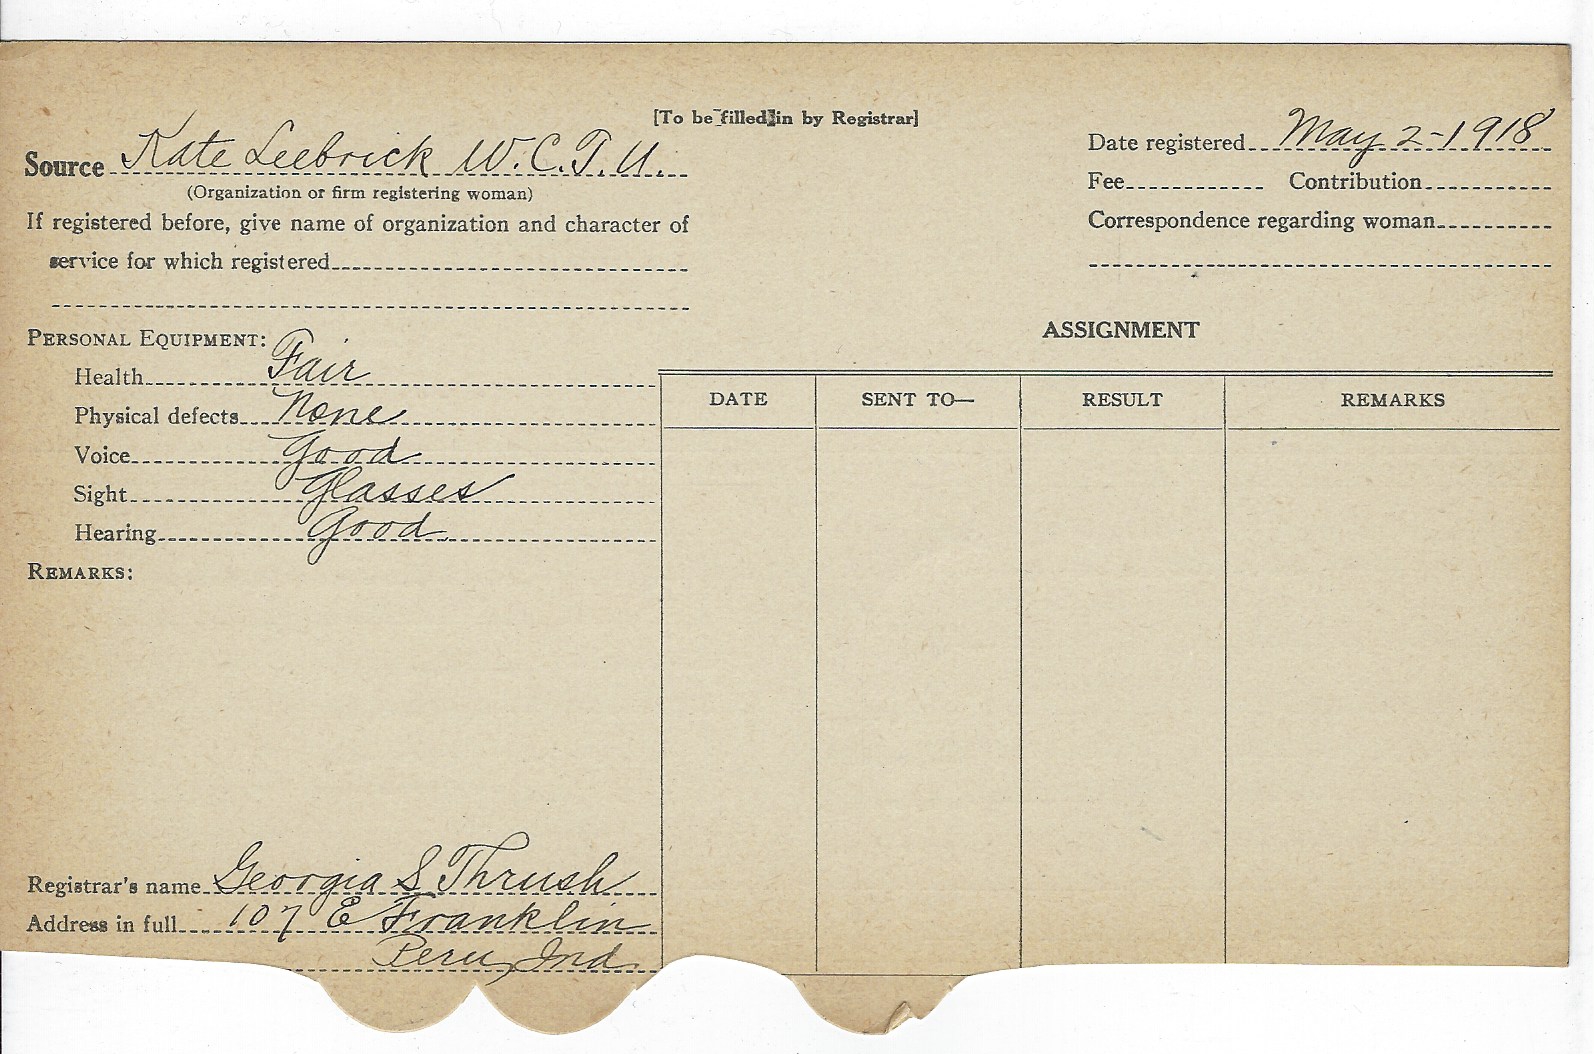 [To be filled in by Registrar]
Source Kate Leebrick W.C.T.U.
(Organization or firm registering woman)
If registered before, give name of organization and character of
service for which registered
Date registered May 2-1918
Fee Contribution
Correspondence regarding woman
PERSONAL EQUIPMENT:
Health Fair
Physical defects None
Voice Good
Sight Glasses
Hearing Good
REMARKS:
ASSIGNMENT
DATE SENT TO— RESULT REMARKS
Registrar's name Georgia S Thrush
Address in full 107 E Franklin
Peru, Ind.